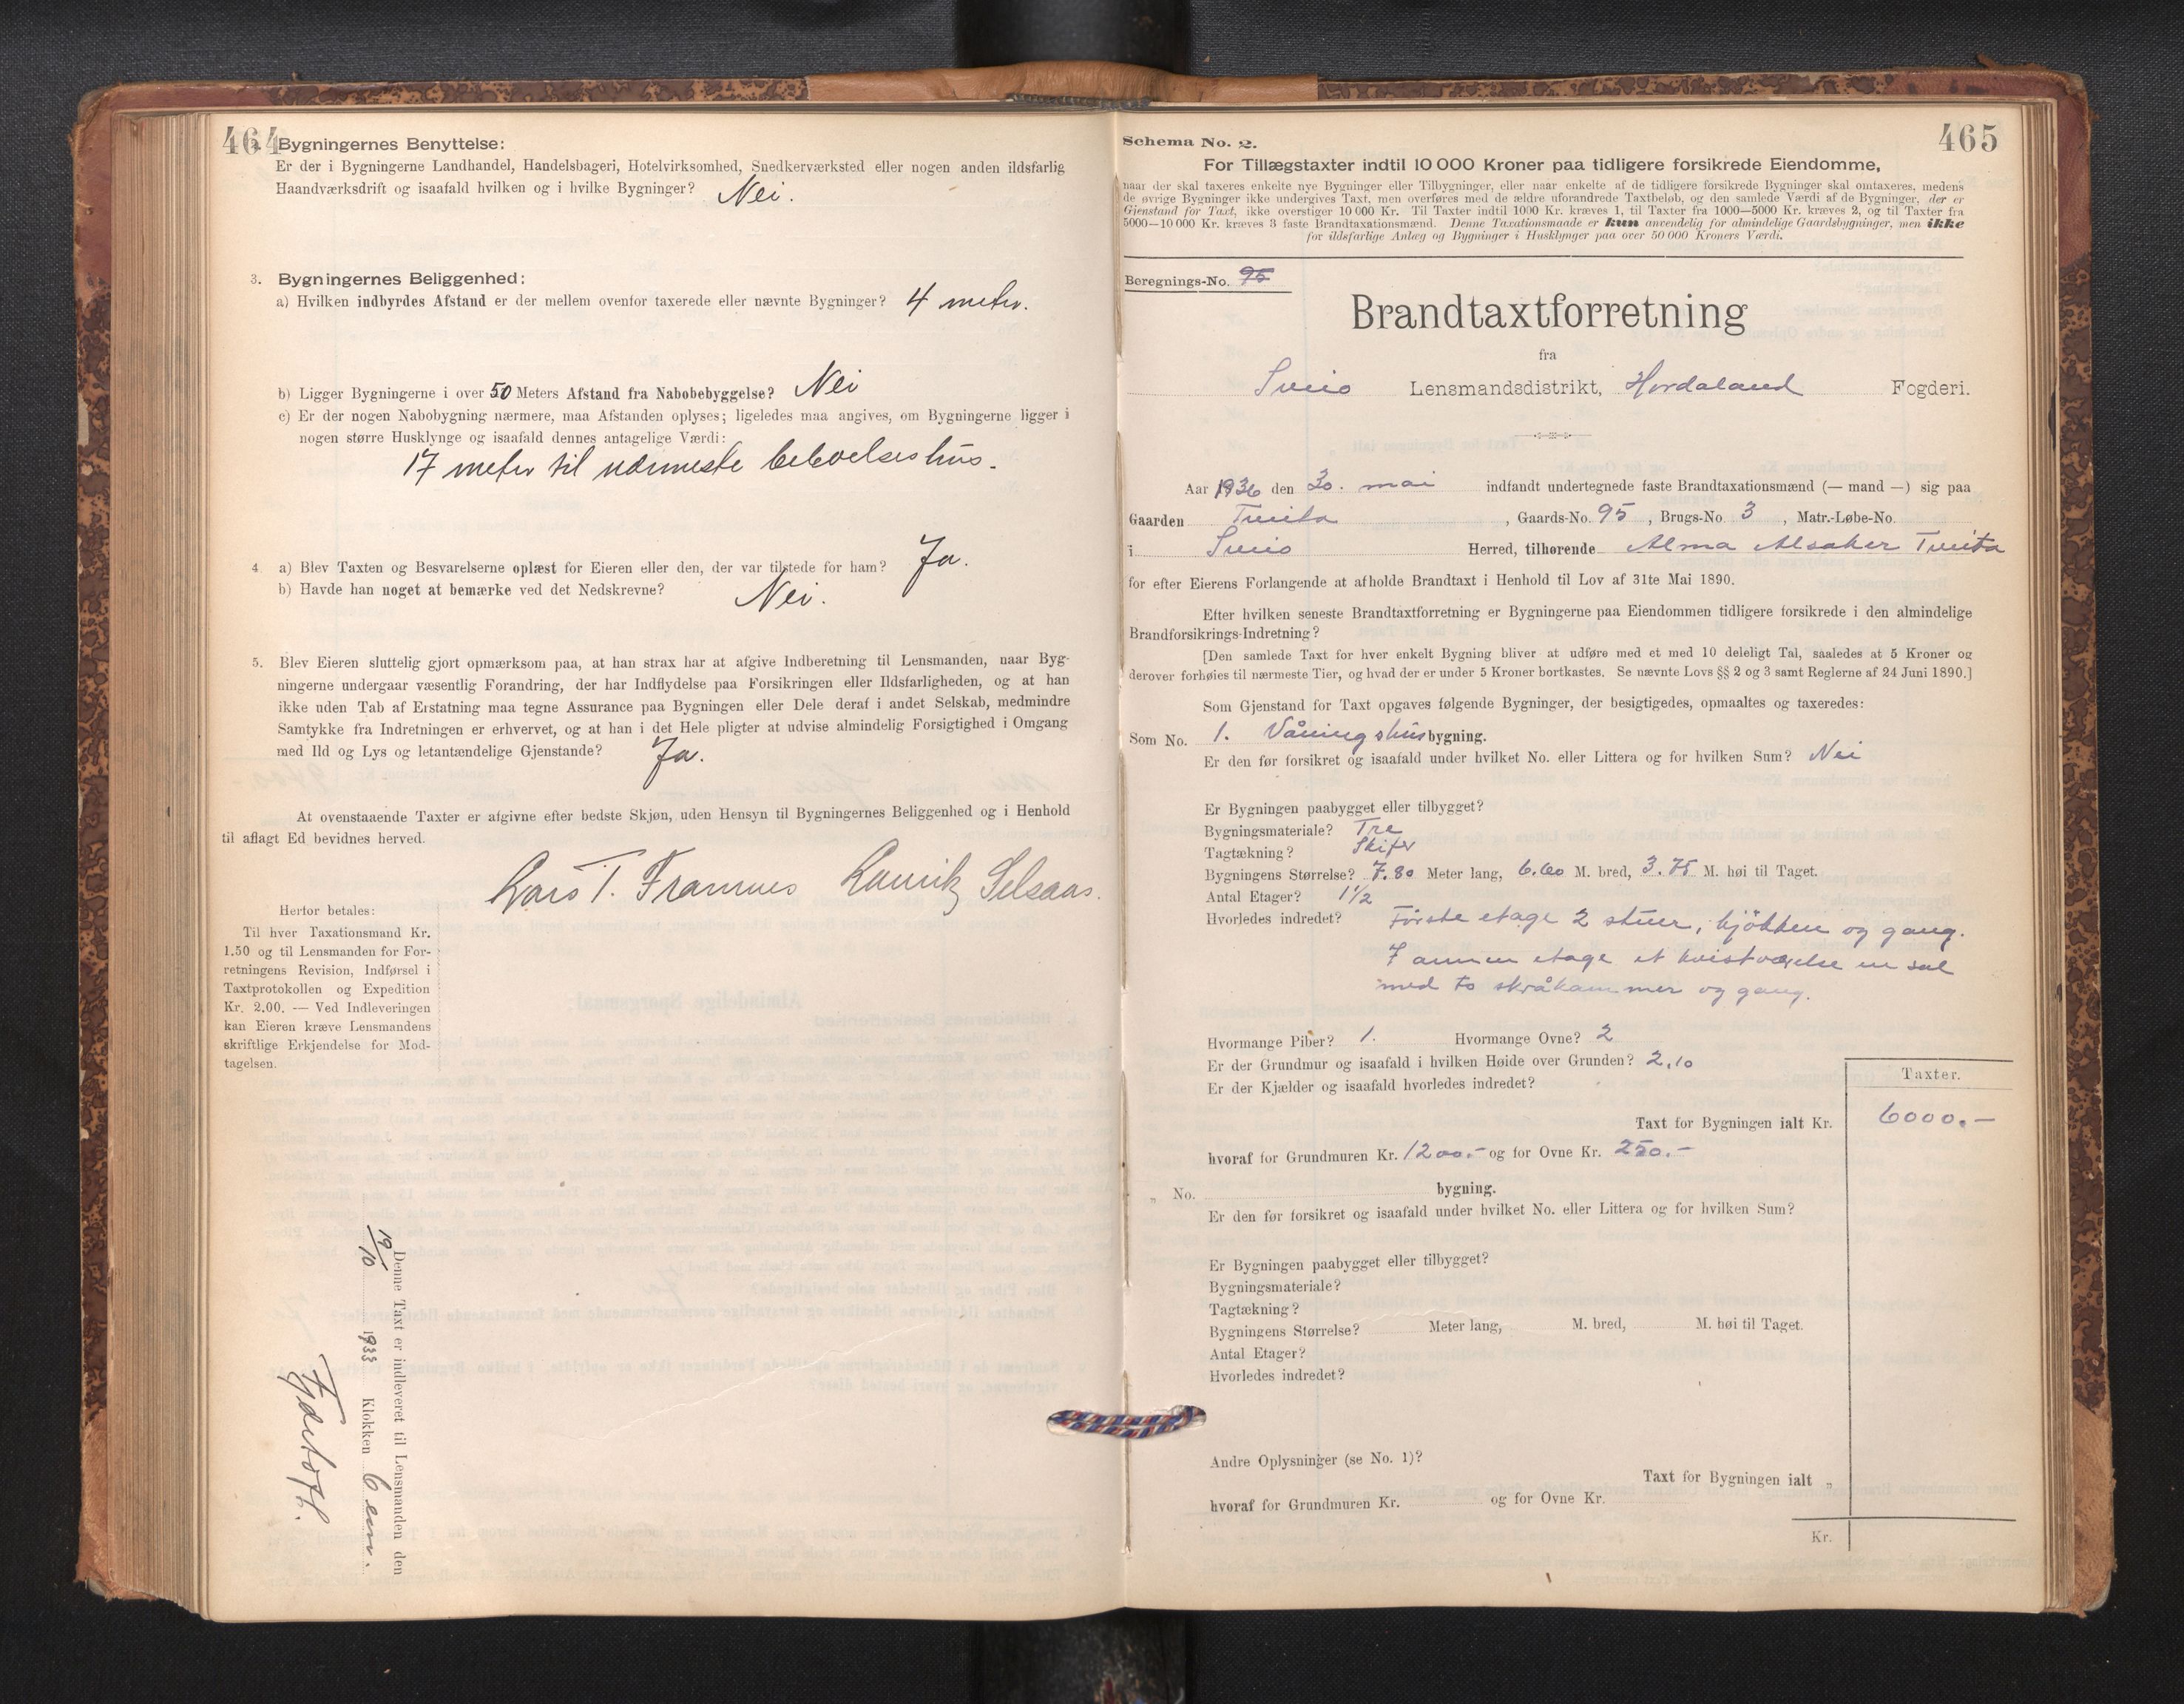 464
2. Bygningernes Benyttelse:
Er der i Bygningerne Landhandel, Handelsbageri, Hotelvirksomhed, Snedkerværksted eller nogen anden ildsfarlig
Haandværksdrift og isaafald hvilken og i hvilke Bygninger? Nei.
3. Bygningernes Beliggenhed:
a) Hvilken indbyrdes Afstand er der mellem ovenfor taxerede eller nævnte Bygninger? 4 meter.
b) Ligger Bygningerne i over 50 Meters Afstand fra Nabobebyggelse? Nei
c) Er der nogen Nabobygning nærmere, maa Afstanden oplyses; ligeledes maa angives, om Bygningerne ligger i
nogen større Husklynge og isaafald dennes antagelige Værdi:
17 meter til nærmeste beboelseshus.
4. a) Blev Taxten og Besvarelserne oplæst for Eieren eller den, der var tilstede for ham? Ja.
b) Havde han noget at bemærke ved det Nedskrevne? Nei.
5. Blev Eieren sluttelig gjort opmærksom paa, at han strax har at afgive Indberetning til Lensmanden, naar Byg-
ningerne undergaar væsentlig Forandring, der har Indflydelse paa Forsikringen eller Ildsfarligheden, og at han
ikke uden Tab af Erstatning maa tegne Assurance paa Bygningen eller Dele deraf i andet Selskab, medmindre
Samtykke fra Indretningen er erhvervet, og at han i det Hele pligter at udvise almindelig Forsigtighed i Omgang
med Ild og Lys og letantændelige Gjenstande? Ja.
At ovenstaaende Taxter er afgivne efter bedste Skjøn, uden Hensyn til Bygningernes Beliggenhed og i Henhold
til aflagt Ed bevidnes herved.
Lars T. Framnes Lauritz Selsaas.
Herfor betales:
Til hver Taxationsmand Kr.
1.50 og til Lensmanden for For-
retningens Revision, Indførsel i
Taxtprotokollen og Expedition
Kr. 2.00. — Ved Indleveringen
kan Eieren kræve Lensmandens
skriftlige Erkjendelse for Mod-
tagelsen.
Denne Taxt er indleveret til Lensmanden den
19/10 1933 Klokken 6 em.
465
Schema No. 2.
For Tillægstaxter indtil 10 000 Kroner paa tidligere forsikrede Eiendomme,
naar der skal taxeres enkelte nye Bygninger eller Tilbygninger, eller naar enkelte af de tidligere forsikrede Bygninger skal omtaxeres, medens
de øvrige Bygninger ikke undergives Taxt, men overføres med de ældre uforandrede Taxtbeløb, og den samlede Værdi af de Bygninger, der er
Gjenstand for Taxt, ikke overstiger 10 000 Kr. Til Taxter indtil 1000 Kr. kræves 1, til Taxter fra 1000—5000 Kr. kræves 2, og til Taxter fra
5000—10 000 Kr. kræves 3 faste Brandtaxationsmænd. Denne Taxationsmaade er kun anvendelig for almindelige Gaardsbygninger, men ikke
for ildsfarlige Anlæg og Bygninger i Husklynger paa over 50 000 Kroners Værdi.
Beregnings-No. 95
Brandtaxtforretning
fra
Sveio Lensmandsdistrikt, Hordaland Fogderi.
Aar 1936 den 30. mai indfandt undertegnede faste Brandtaxationsmænd (— mand —) sig paa
Gaarden Tveita, Gaards-No. 95, Brugs-No 3, Matr.-Løbe-No.
i Sveio Herred, tilhørende Alma Alsaker Tveita
for efter Eierens Forlangende at afholde Brandtaxt i Henhold til Lov af 31te Mai 1890.
Efter hvilken seneste Brandtaxtforretning er Bygningerne paa Eiendommen tidligere forsikrede i den almindelige
Brandforsikrings-Indretning?
[Den samlede Taxt for hver enkelt Bygning bliver at udføre med et med 10 deleligt Tal, saaledes at 5 Kroner og
derover forhøies til nærmeste Tier, og hvad der er under 5 Kroner bortkastes. Se nævnte Lovs §§ 2 og 3 samt Reglerne af 24 Juni 1890.]
Som Gjenstand for Taxt opgaves følgende Bygninger, der besigtigedes, opmaaltes og taxeredes:
Som No. 1. Våningshus bygning.
Er den før forsikret og isaafald under hvilket No. eller Littera og for hvilken Sum? Nei
Er Bygningen paabygget eller tilbygget?
Bygningsmateriale? Tre
Tagtækning? Skifer
Bygningens Størrelse? 7.80 Meter lang, 6.60 M. bred, 3.75 M. høi til Taget.
Antal Etager? 1½
Hvorledes indredet? Første etage 2 stuer, kjökken og gang.
I annen etage et kvistværelse en sal
med to skråkammer og gang.
Hvormange Piber? 1. Hvormange Ovne? 2
Er der Grundmur og isaafald i hvilken Høide over Grunden? 2.10
Er der Kjælder og isaafald hvorledes indredet?
Taxter.
Taxt for Bygningen ialt Kr. 6000.-
hvoraf for Grundmuren Kr. 1200.- og for Ovne Kr. 250.-
„ No. bygning.
Er den før forsikret og isaafald under hvilket No. eller Littera og for hvilken Sum?
Er Bygningen paabygget eller tilbygget?
Bygningsmateriale?
Tagtækning?
Bygningens Størrelse? Meter lang, M. bred, M. høi til Taget.
Antal Etager?
Hvorledes indredet?
Andre Oplysninger (se No. 1)?
Taxt for Bygningen ialt „
hvoraf for Grundmuren Kr. og for Ovne Kr.
Kr.